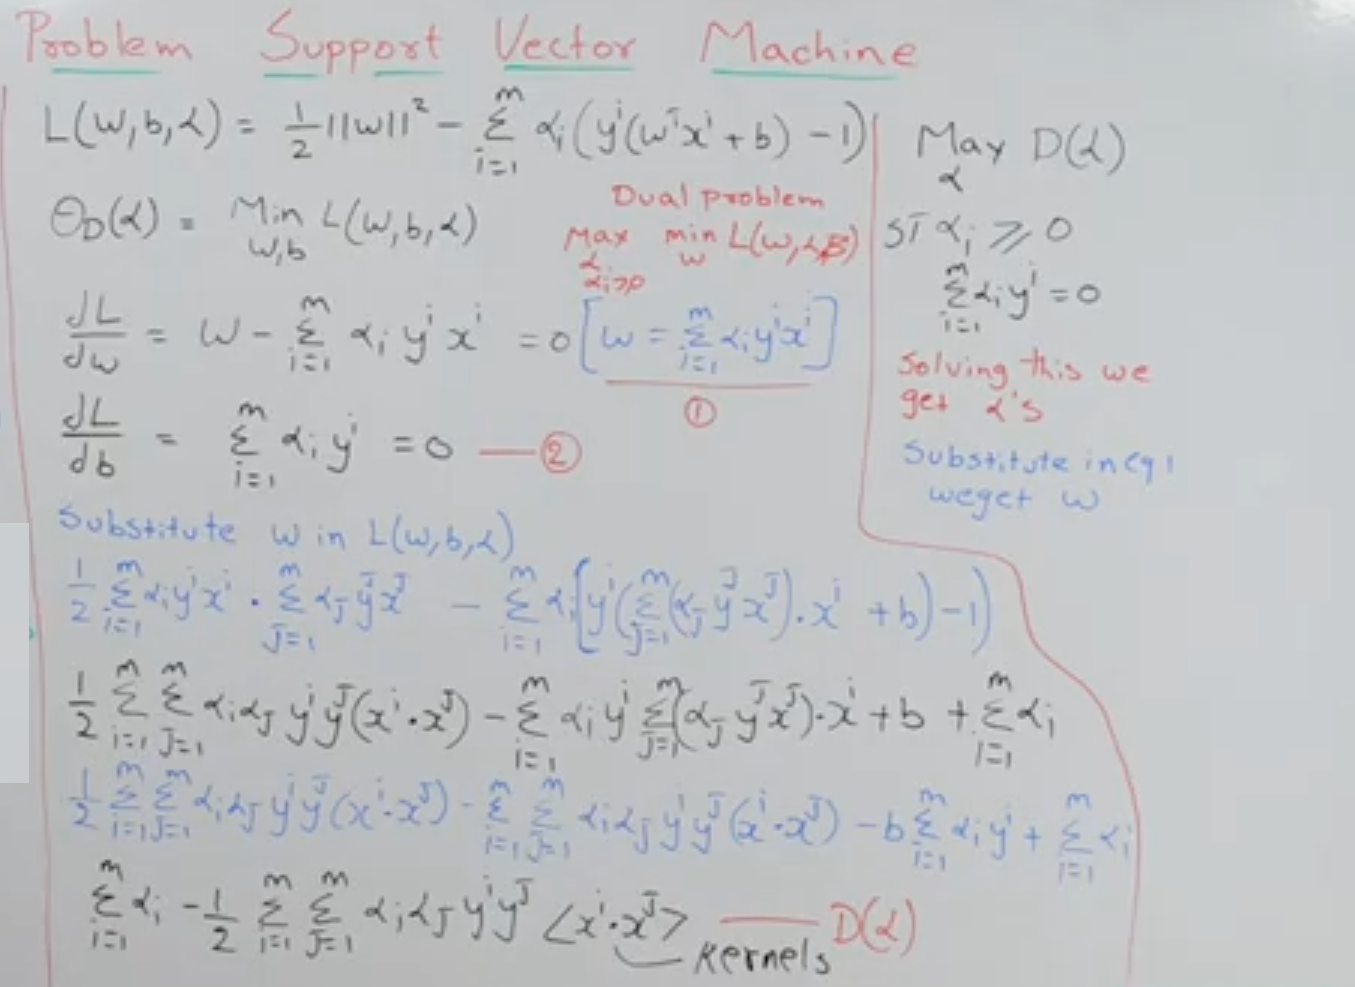 Problem Support Vector Machine
L(w,b,α) = 1/2 ||w||² - Σ_{i=1}^{m} α_i (y^i(w^T x^i + b) - 1)
θ_D(α) = Min_{w,b} L(w,b,α)
Dual problem
Max_{α, α_i≥0} min_w L(w,α,β)
dL/dw = w - Σ_{i=1}^{m} α_i y^i x^i = 0 [w = Σ_{i=1}^{m} α_i y^i x^i]
①
dL/db = Σ_{i=1}^{m} α_i y^i = 0 — ②
Substitute w in L(w,b,α)
1/2 Σ_{i=1}^{m} α_i y^i x^i · Σ_{J=1}^{m} α_J y^J x^J - Σ_{i=1}^{m} α_i [y^i (Σ_{J=1}^{m} (α_J y^J x^J) · x^i + b) - 1)
1/2 Σ_{i=1}^{m} Σ_{J=1}^{m} α_i α_J y^i y^J (x^i · x^J) - Σ_{i=1}^{m} α_i y^i Σ_{J=1}^{m} (α_J y^J x^J) · x^i + b + Σ_{i=1}^{m} α_i
1/2 Σ_{i=1}^{m} Σ_{J=1}^{m} α_i α_J y^i y^J (x^i · x^J) - Σ_{i=1}^{m} Σ_{J=1}^{m} α_i α_J y^i y^J (x^i · x^J) - b Σ_{i=1}^{m} α_i y^i + Σ_{i=1}^{m} α_i
Σ_{i=1}^{m} α_i - 1/2 Σ_{i=1}^{m} Σ_{J=1}^{m} α_i α_J y^i y^J <x^i · x^J> — D(α)
Kernels
Max_α D(α)
ST α_i ≥ 0
Σ_{i=1}^{m} α_i y^i = 0
Solving this we
get α's
Substitute in eq 1
we get w